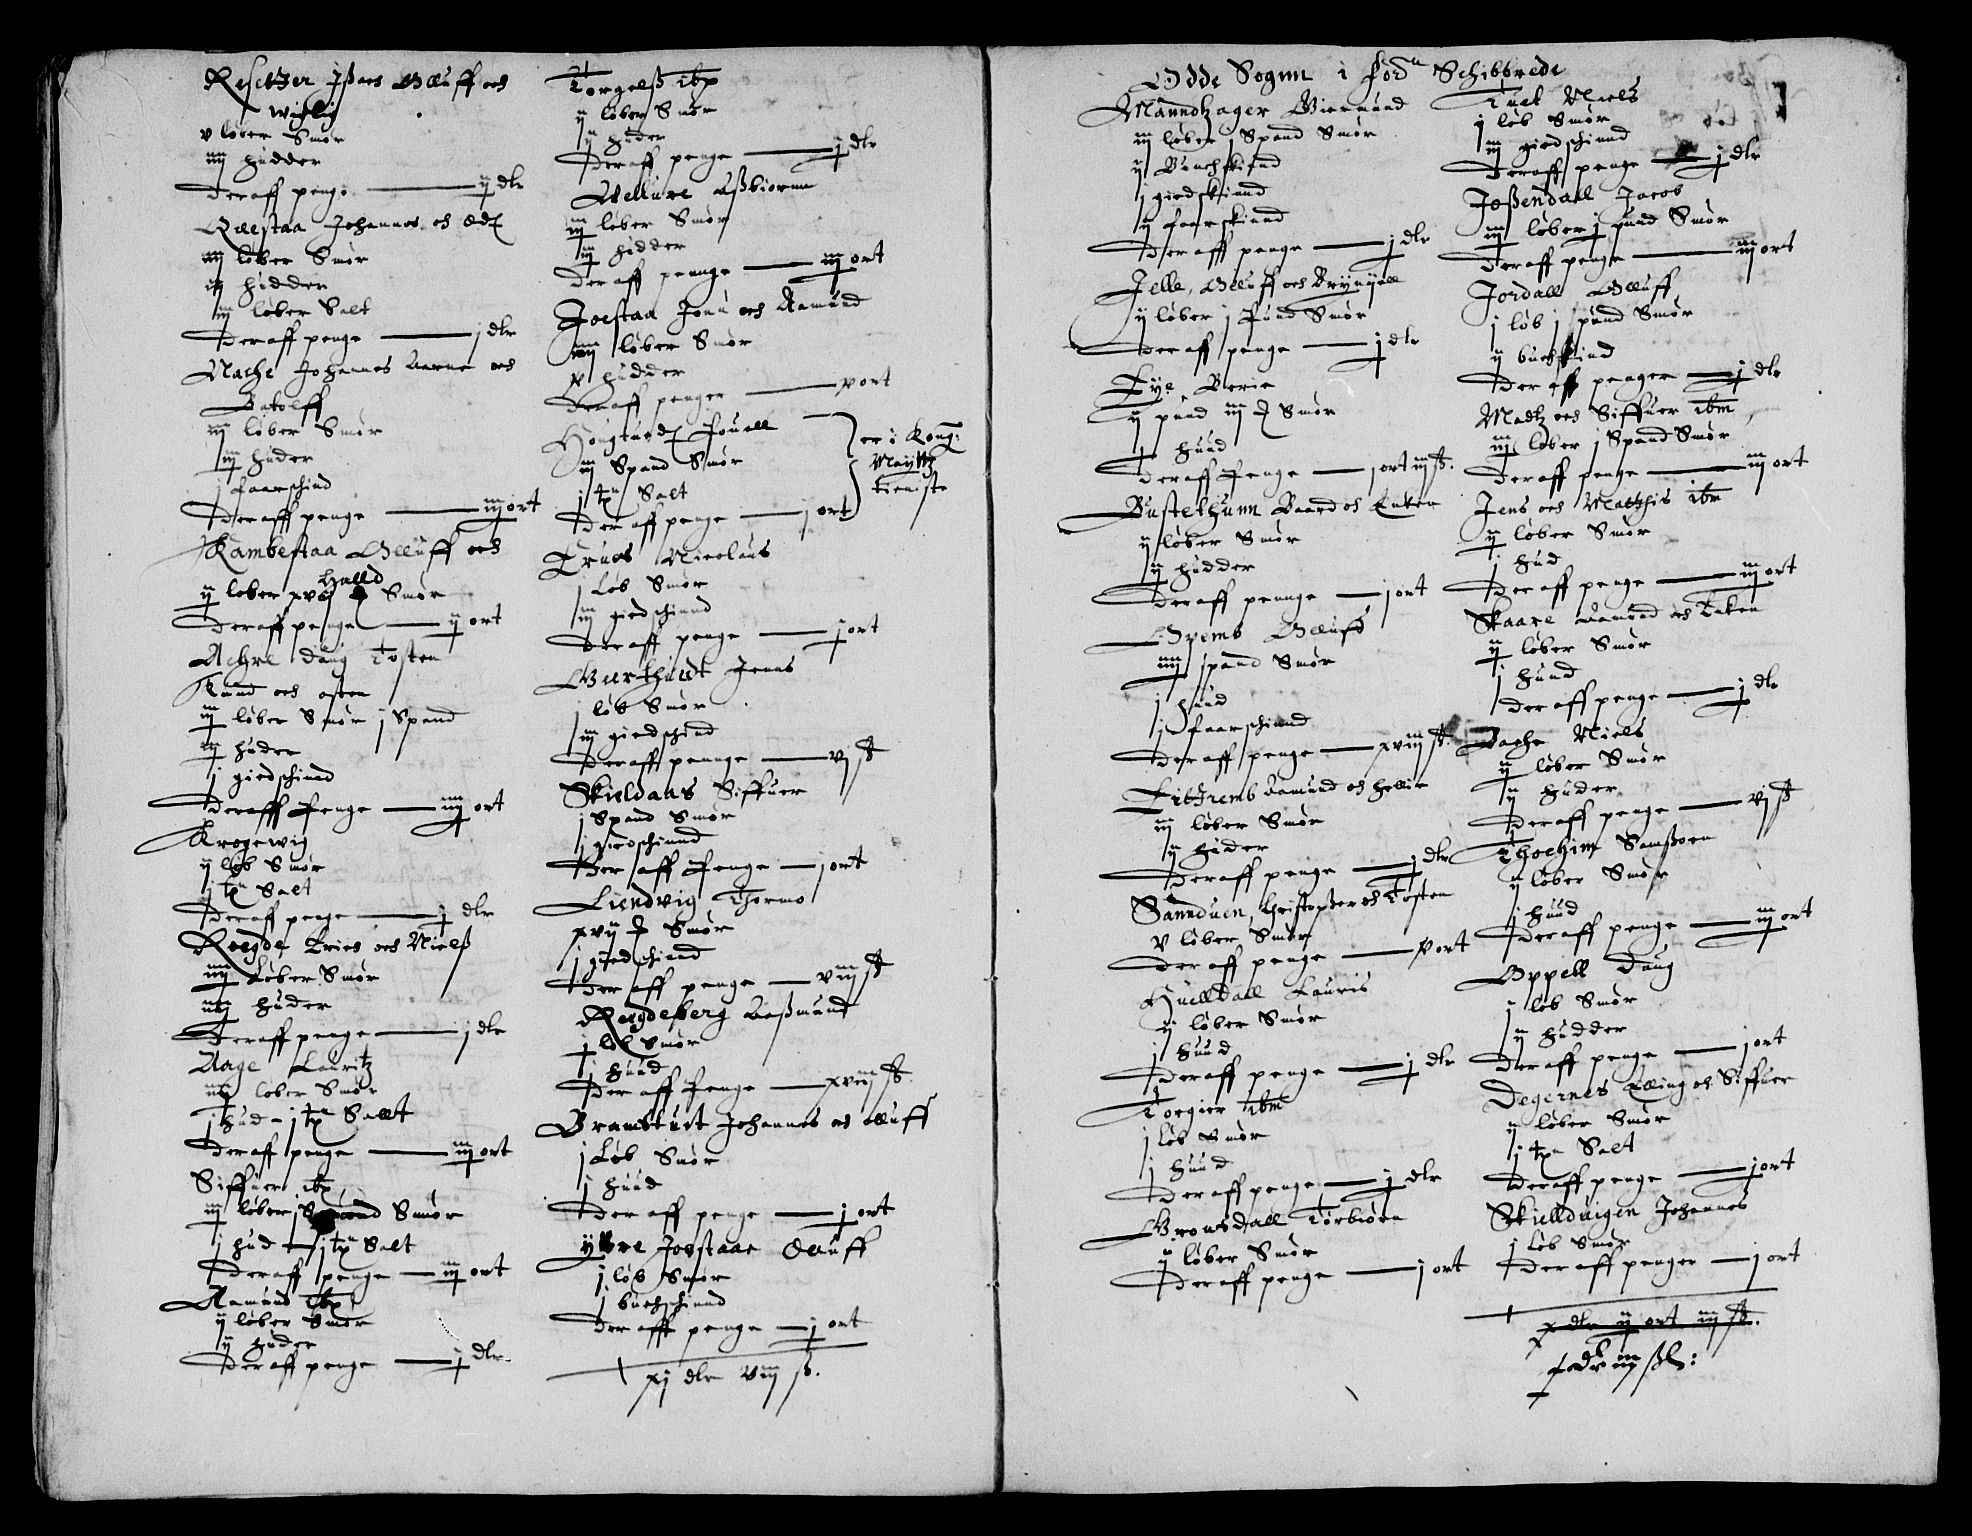 Resether Ifuer Oluff och
Wichlig
v løber Smør
iiij hudder
Deraff peng. — ij dlr
Questaa Johannes och Odd
iiij løber Smør
iij hudder
iij løber Salt
Deraff penge — j dlr
Mache Johannes Aarne och
Botolff
iij løber Smør
iij huder
j faarschind
Deraff penge — iij ort
Kambestaa Oluff och
Halld
ij løber xvij Smør
Deraff penge — ij ort
Achre Daug Tosten
Knud och osten
iij løber Smør j Spand
iij huder
j giedschind
Deraff Penge — iiij ort
Krogewig
ij løb Smør
j tn Salt
Deraff penge — j dlr
Roegde Tries och Nielß
iiij Løber Smør
iiij huder
Deraff penge — j dlr
Aage Lauritz
iiij løber Smør
j hud - j tn Sallt
Deraff penge — iij ort
Siffuer ibm
iij løber j Spand Smør
j hud - j tn Salt
Deraff penge — iij ort
Aamund ibm
ij løber Smør
ij huder
Deraff penge — j dlr
Torgelß ibm
ij løber Smør
ij huder
Deraff penge — j dlr
Mellure Aßbiornn
iij løber Smør
iij hudder
Deraff pennge — iij ort
Joestaa Jonn och Aamund
iiij løber Smør
v hudder
Deraff penger — v ort
Hougtued Jouell
iij Spand Smør
j tn Salt
Deraff penge — j ort
er i Kong:
Maytts
tieniste
Trues Nicolaus
j Løb Smør
iij giedschind
Deraff penge — j ort
Murthuedt Jenns
j løb Smør
iij giedschind
Deraff pennge — vj ß
Skieldaas Siffuer
j Spand Smør
j giedschinnd
Deraff Penge — j ort
Liendvig Thormo
xvij Smør
j giedschind
Deraff penge — viij ß
Regdeberg Aaßmundt
j løb Smør
j huud
Deraff Penge — xviij ß
Bramtuet Johannes och olluff
j Løb Smør
j huud
Deraff penge — j ort
yttre Joestaae Oluff
j løb Smør
j buchschinnd
Deraff penge — j ort
xj dlr viij ß.
Odde Sognn i ford Schibbrede
Manndhager Gurmund
iij løber j Spand Smør
ij Buchskind
j giedskinnd
ij faarskinnd
Deraff penge — j dlr
Jelle, Olluff och Brynyell
ij løber j Pund Smør
Deraff penge — j dlr
Eye Berie
ij pund iij Smør
j huud
Deraff Penge — j ort iiij ß.
Bustethunn Baard och Enken
ij løber Smør
ij hudder
Deraff pennge — j ort
Opemb Olluff
iiij Spand Smør
j huud
j faarschinnd
Deraff penge — xviij ß.
Eitremb Aamund och Hellie
iij løber Smør
ij huder
Deraff penge — j dlr
Sannduen, Christopher och Tosten
v løber Smør
Deraff penge — v ort
Huelldall Lauris
ij løber Smør
j huud
Deraff penge — j dlr
Torgier ibm
j løb Smør
j huud
Deraff penge — j dlr
Gronsdall Torbiørn
ij løber Smør
Deraff penge — j ort
Tuet Niels
j løb Smør
iij giedschinnd
Deraff penge — j dlr
Joßendall Jacob
iij løber j pund Smør
Deraff penge — iij ort
Jordall Olluff
j løb j pund Smør
ij buchskind
Deraff penger — j dlr
Madtz och Siffuer ibm
iij løber j Spand Smør
Deraff penge — iij ort
Jens och Matthis ibm
ij løber Smør
j hud
Deraff penge — iij ort
Skaare Aamund och Enken
ij løber Smør
j huud
Deraff penge — j dlr
Bache Niels
ij løber Smør
ij huder
Deraff penge — vj ß
Thochim Samsoen
ij løber Smør
j huud
Deraff penge — iij ort
Oppell Daug
j løb Smør
ij hudder
Deraff penge — j ort
Degernes Elling och Siffuer
ij løber Smør
j tn Salt
Deraff penge — j ort
Skiellduigen Johannes
j løb Smør
Deraff penger — j ort
x dlr ij ort iiij ß.